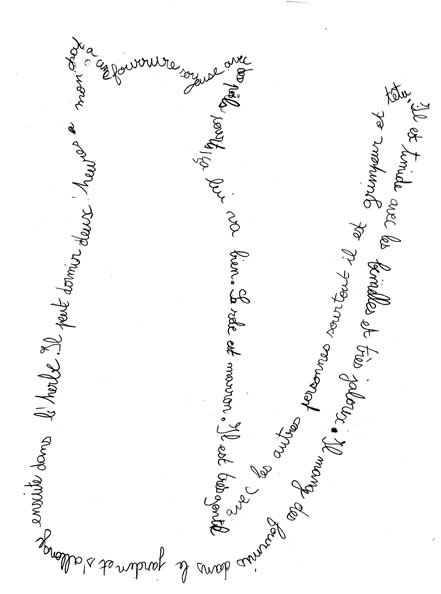 mon chat a une fourrure soyeuse avec des poils ça lui va bien. Sa robe est marron. Il est très gentil les autres personnes sourtout il et grimpeur et têtu. Il et timide avec les femelles et très jaloux. Il mange des fourmis dans le jardin et s'allonge ensuite dans l'herbe. Il peut dormir deux heures.